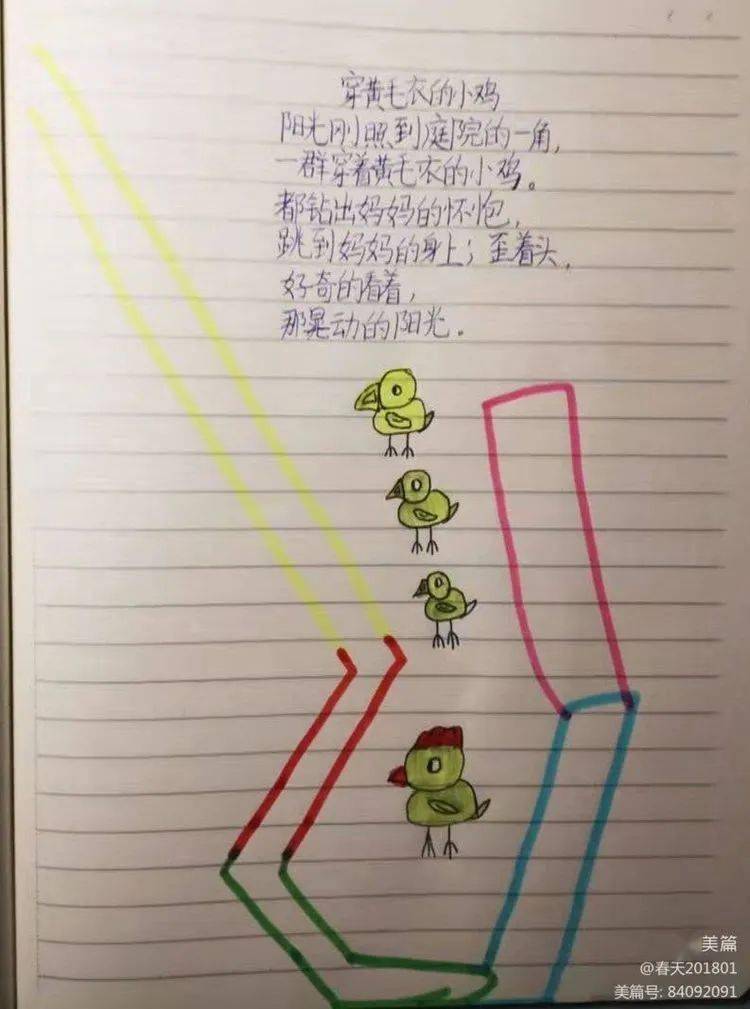 穿黄毛衣的小鸡
阳光刚照到庭院的一角,
一群穿着黄毛衣的小鸡。
都钻出妈妈的怀抱,
跳到妈妈的身上;歪着头,
好奇的看着,
那晃动的阳光.
美篇
@春天201801
美篇号: 84092091